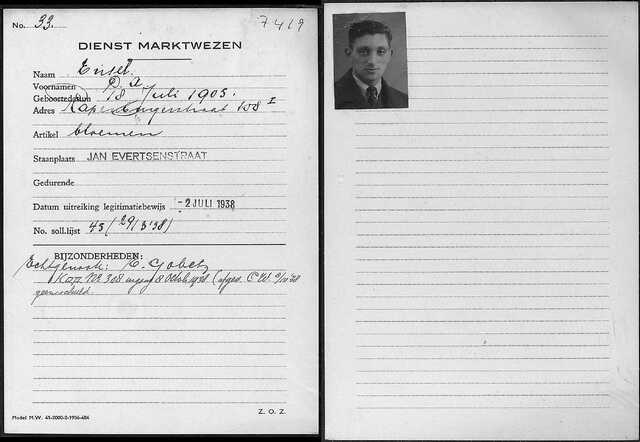 No. 33.
7419
DIENST MARKTWEZEN
Naam Ensel.
Voornamen
Geboortedatum 18 Juli 1905.
Adres 158 I
Artikel bloemen
Staanplaats JAN EVERTSENSTRAAT
Gedurende
Datum uitreiking legitimatiebewijs -2 JULI 1938
No. soll.lijst 45 (29/3'38)
BIJZONDERHEDEN:
Echtgenoote: E. Gobets
Kaart No 308 8 Octob. 1938 (afgev. C.W.
Model M.W. 41-2000-2-1936-484
Z. O. Z.